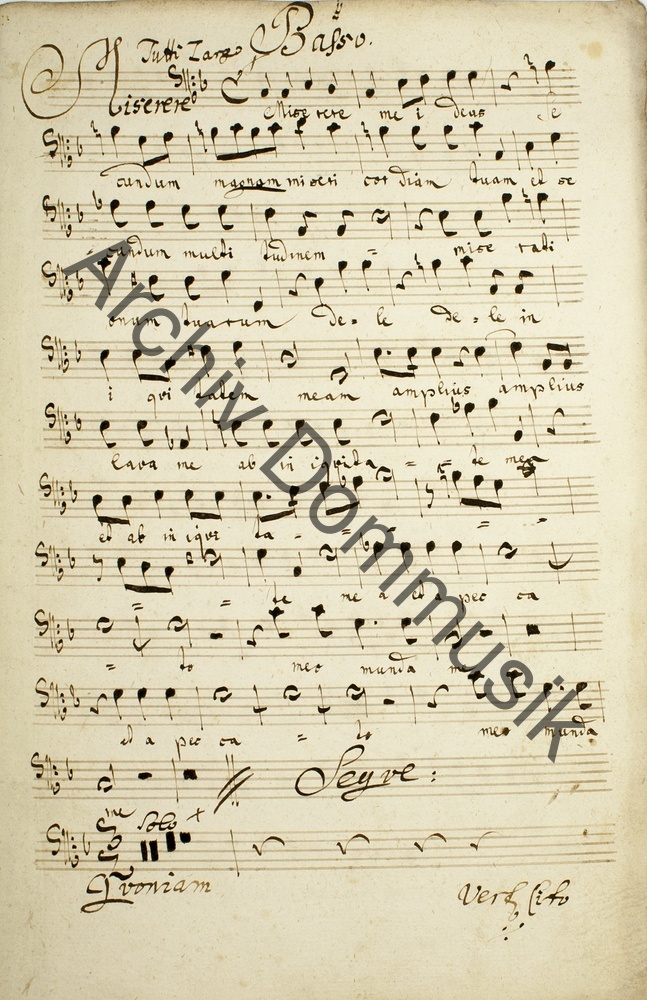 Tutti Largo Basso.
Miserere
Miserere me i deus se
cundum magnam miseri cor diam tuam et se
cundum multi tudinem = mise rati
onum tuarum de - le de - le in
i qui tatem meam amplius amplius
lava me ab in iquita = = te mea
et ab in iqui ta - - - = =
= = te me a et a pec ca
= to meo munda me
et a pec ca - to meo munda
me Seqve:
Solo
Qvoniam Verte Cito
Archiv Dommusik